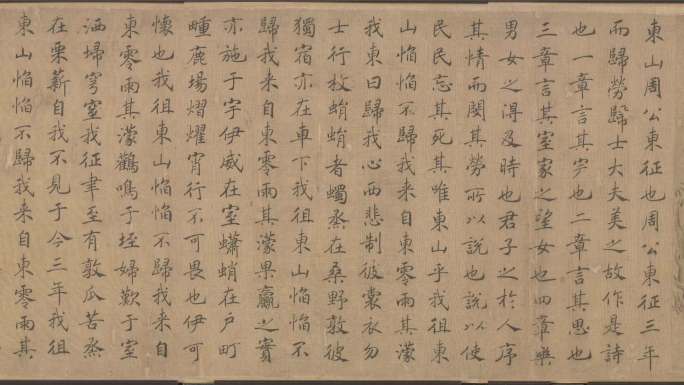 東山周公東征也周公東征三年
而歸勞歸士大夫美之故作是詩
也一章言其完也二章言其思也
三章言其室家之望女也四章樂
男女之得及時也君子之於人序
其情而閔其勞所以說也說以使
民民忘其死其唯東山乎我徂東
山慆慆不歸我来自東零雨其濛
我東曰歸我心西悲制彼裳衣勿
士行枚蜎蜎者蠋烝在桑野敦彼
獨宿亦在車下我徂東山慆慆不
歸我来自東零雨其濛果臝之實
亦施于宇伊威在室蠨蛸在戶町
畽鹿場熠燿宵行不可畏也伊可
懷也我徂東山慆慆不歸我来自
東零雨其濛鸛鳴于垤婦歎于室
洒埽穹窒我征聿至有敦瓜苦烝
在栗薪自我不見于今三年我徂
東山慆慆不歸我来自東零雨其